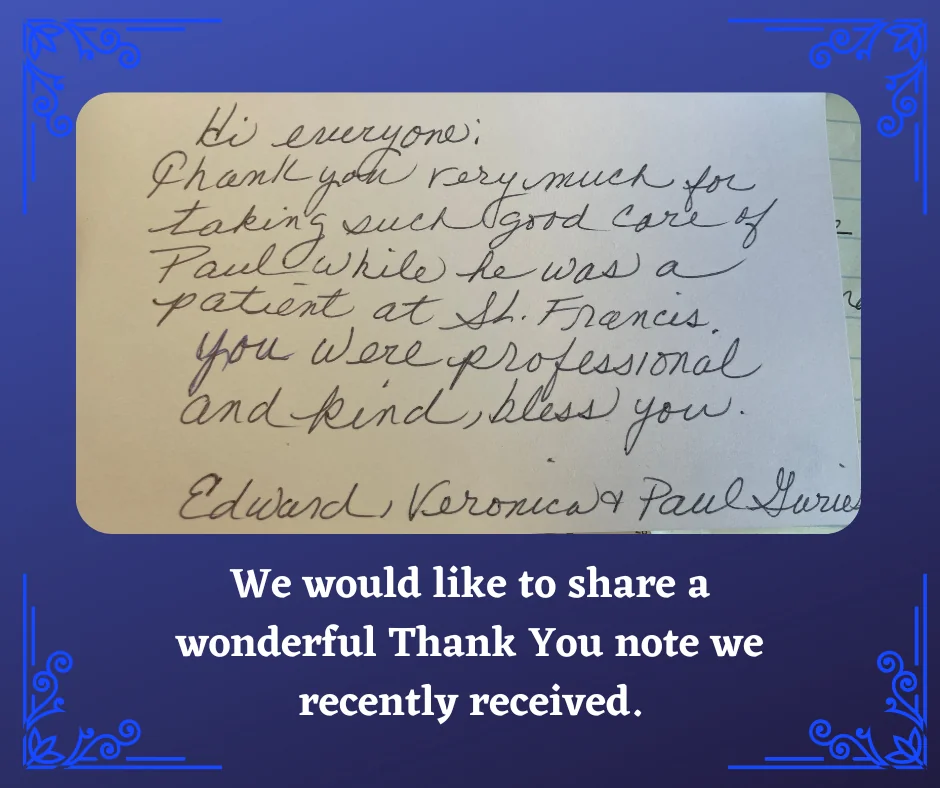 Hi everyone:
Thank you very much for
taking such good care of
Paul while he was a
patient at St. Francis.
you were professional
and kind, bless you.
Edward, Veronica & Paul
We would like to share a
wonderful Thank You note we
recently received.